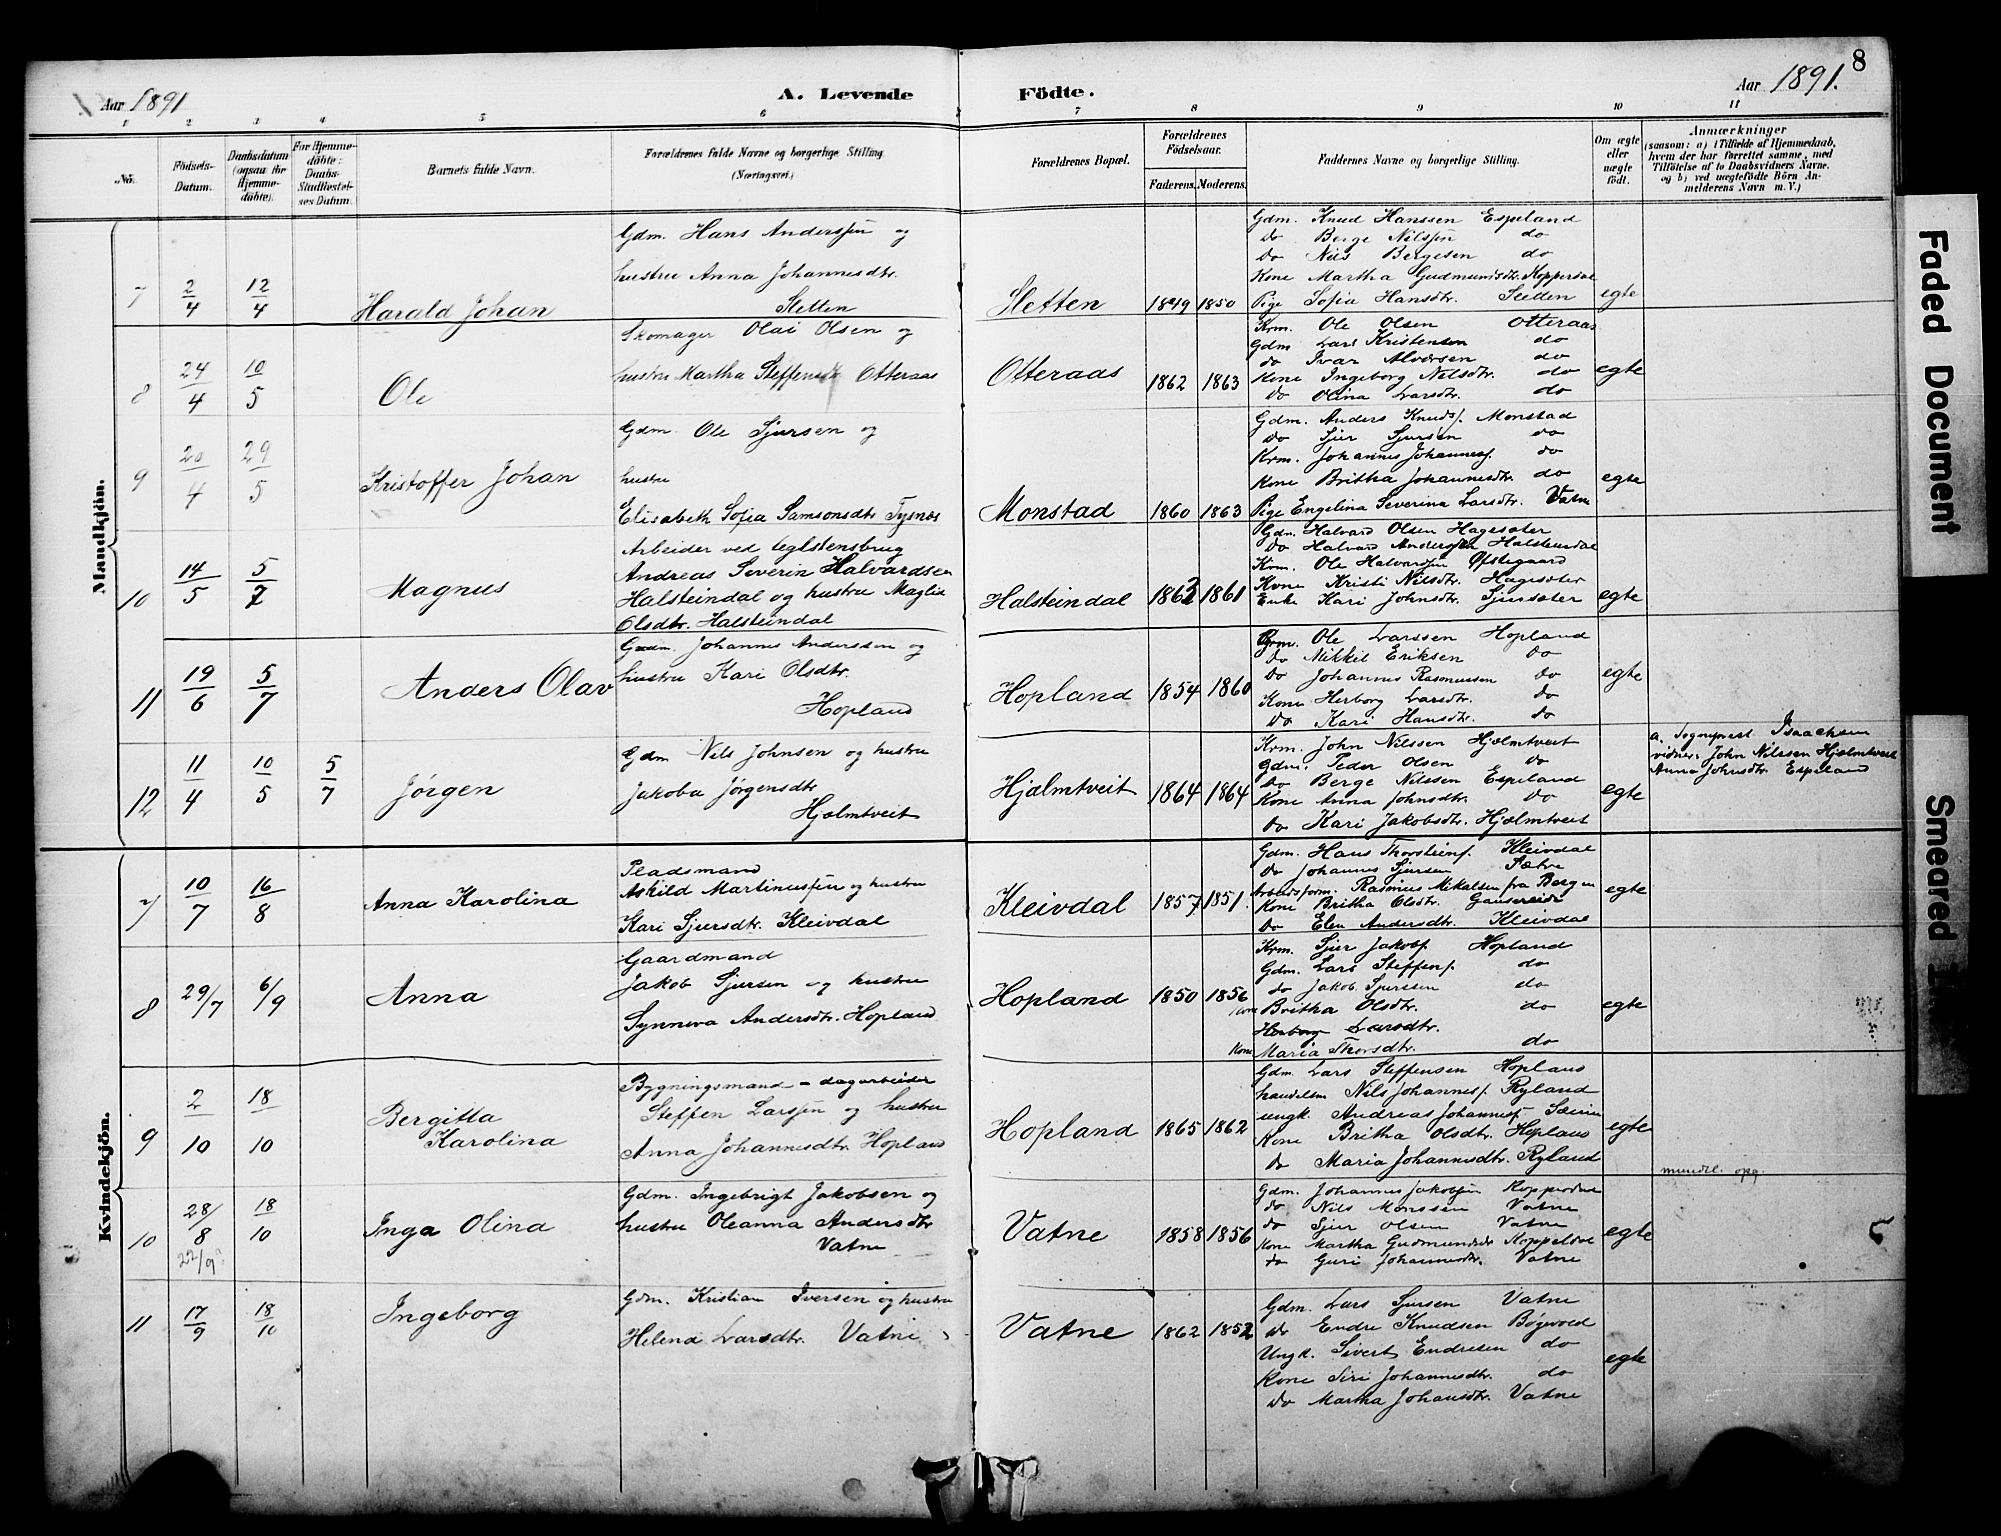 8
Aar 1891
A. Levende Födte.
Aar 1891.
1 2 3 4 5 6 7 8 9 10 11
No.
Födsels-Datum.
Daabsdatum (ogsaa for Hjemme-döbte).
For Hjemme-döbte: Daabs-Stadfæstel-ses Datum.
Barnets fulde Navn.
Forældrenes fulde Navne og borgerlige Stilling. (Næringsvei.)
Forældrenes Bopæl.
Forældrenes Födselsaar.
Faderens. Moderens.
Faddernes Navne og borgerlige Stilling.
Om ægte eller uægte födt.
Anmærkninger
(saasom: a) i Tilfælde af Hjemmedaab,
hvem der har forrettet samme, med
Tilföielse af to Daabsvidners Navne.
og b) ved uægtefödte Börn An-
melderens Navn m. V.)
Mandkjön.
7 2/4 12/4 Harald Johan
Gdm. Hans Anderssen og
hustru Anna Johannesdtr.
Sletten
Sletten 1849 1850
Gdm. Knud Hanssen Espeland
do Berge Nilssen do
do Nils Bergesen do
Kone Martha Gudmundsdtr. Koppersdal
Pige Sofia Hansdtr. Sletten
egte
8 24/4 10/5 Ole
Skomager Olai Olsen og
hustru Martha Steffensdtr Otteraas
Otteraas 1862 1863
Krm. Ole Olsen Otteraas
Gdm Lars Kristensen do
do Ivar Alversen do
Kone Ingeborg Nilsdtr. do
do Olina Larsdtr. do
egte
9 20/4 29/5 Kristoffer Johan
Gdm. Ole Sjursen og
hustru
Elisabeth Sofia Samsonsdtr Tysnæs
Monstad 1860 1863
Gdm. Anders Knuds. Monstad
do Sjur Sjursen do
Krm. Johannes Johanness. do
Kone Britha Johannesdtr. do
Pige Engelina Severina Larsdtr. Vatne
egte
10 14/5 5/7 Magnus
Arbeider ved teglstensbrug
Andreas Severin Halvardsen
Halsteindal og hustru Maglia
Olsdtr. Halsteindal
Halsteindal 1862 1861
Gdm. Halvard Olsen Hagesæter
do Halvard Anderssen Halsteindal
Krm. Ole Halvardsen Øfstegaard
Kone Kristi Nilsdtr. Hagesæter
Enke Kari Johnsdtr. Sjursæter
egte
11 19/6 5/7 Anders Olav
Gdm. Johannes Anderssen og
hustru Kari Olsdtr.
Hopland
Hopland 1854 1860
Grm. Ole Larssen Hopland
do Mikkel Eriksen do
do Johannes Rasmussen do
Kone Herborg Larsdtr. do
do Kari Hansdtr. do
egte
12 11/4 10/5 5/7 Jørgen
Gdm Nils Johnsen og hustru
Jakoba Jørgensdtr
Hjelmtveit
Hjelmtveit 1864 1864
Krm. John Nilssen Hjelmtveit
Gdm. Peder Olsen do
do Berge Nilssen Espeland
Kone Anna Johnsdtr. do
do Kari Jakobsdtr. Hjelmtveit
egte
a. Sogneprest Isachsen
vidner. John Nilssen Hjelmtveit
Anna Johnsdtr Espeland
Kvindekjön.
7 10/7 16/8 Anna Karolina
Pladsmand
Askild Martinussen og hustru
Kari Sjursdtr. Kleivdal
Kleivdal 1857 1851.
Gdm. Hans Thorsteins. Kleivdal
do Johannes Sjursen Sætre
Arbeidsform. Rasmus Mikalsen fra Bergen
Kone Britha Olsdtr.
do Elen Andersdtr. Kleivdal
egte
8 29/7 6/9 Anna
Gaardmand
Jakob Sjursen og hustru
Synneva Andersdtr. Hopland
Hopland 1850 1856
Krm. Sjur Jakobs. Hopland
Gdm. Lars Steffens. do
do Jakob Sjurssen do
Kone Britha Olsdtr. do
Herborg Larsdtr.
Kone Maria Thorsdtr. do
egte
9 2/10 18/10 Bergitta Karolina
Bygningsmand - dagarbeider
Steffen Larssen og hustru
Anna Johannesdtr. Hopland
Hopland 1865 1862
Gdm Lars Steffensen Hopland
handelsm Nils Johanness. Ryland
ungk. Andreas Johanness.
Kone Britha Olsdtr. Hopland
do Maria Johannesdtr. Ryland
egte
mundtl. opg.
10 28/8 22/9? 18/10 Inga Olina
Gdm. Ingebrigt Jakobsen og
hustru Oleanna Andersdtr
Vatne
Vatne 1858 1856
Gdm. Johannes Jakobsen Koppersdal
do Nils Monssen Vatne
do Sjur Olsen Vatne
Kone Martha Gudmundsdtr Koppelsdal
do Guri Johannesdtr. Vatne
egte
11 17/9 18/10 Ingeborg
Gdm. Kristian Iversen og hustru
Helena Larsdtr. Vatne
Vatne 1862 1852
Gdm. Lars Sjursen Vatne
do Endre Knudsen Bogvold
Ungk. Sivert Endresen do
Kone Siri Johannesdtr. do
do Martha Johansdtr. Vatne
egte
Faded Document
Smeared